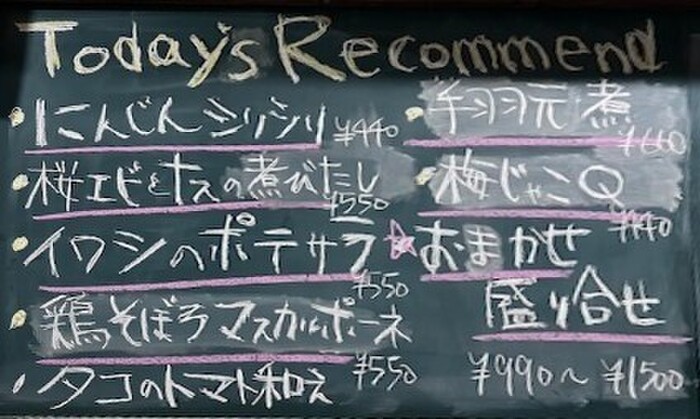 Today's Recommend
・にんじんシリシリ ¥440
・桜エビとナスの煮びたし ¥550
・イワシのポテサラ ¥550
・鶏そぼろマスカルポーネ ¥550
・タコのトマト和え
・手羽元煮 ¥660
・梅じゃこQ ¥440
☆おまかせ
盛り合せ
¥990～¥1500